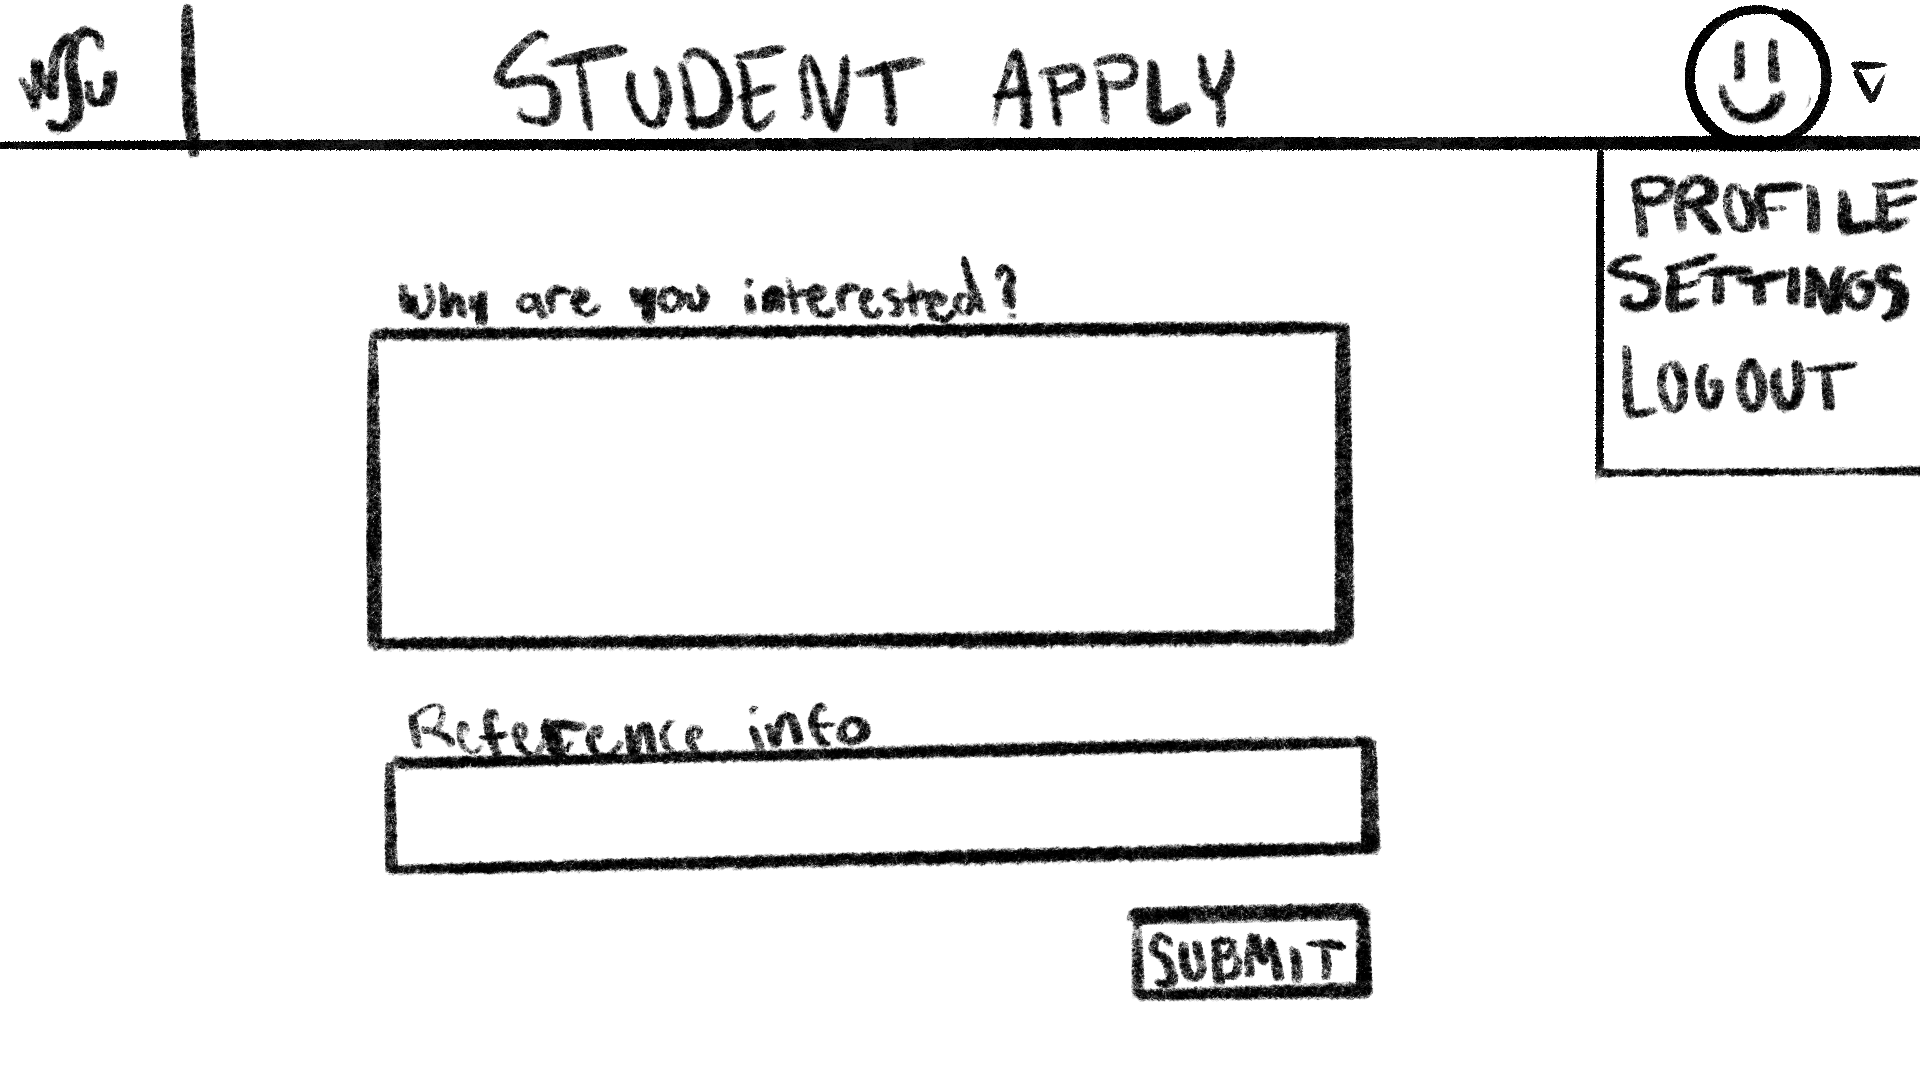 WSU
STUDENT APPLY
PROFILE
SETTINGS
LOGOUT
Why are you interested?
Reference info
SUBMIT